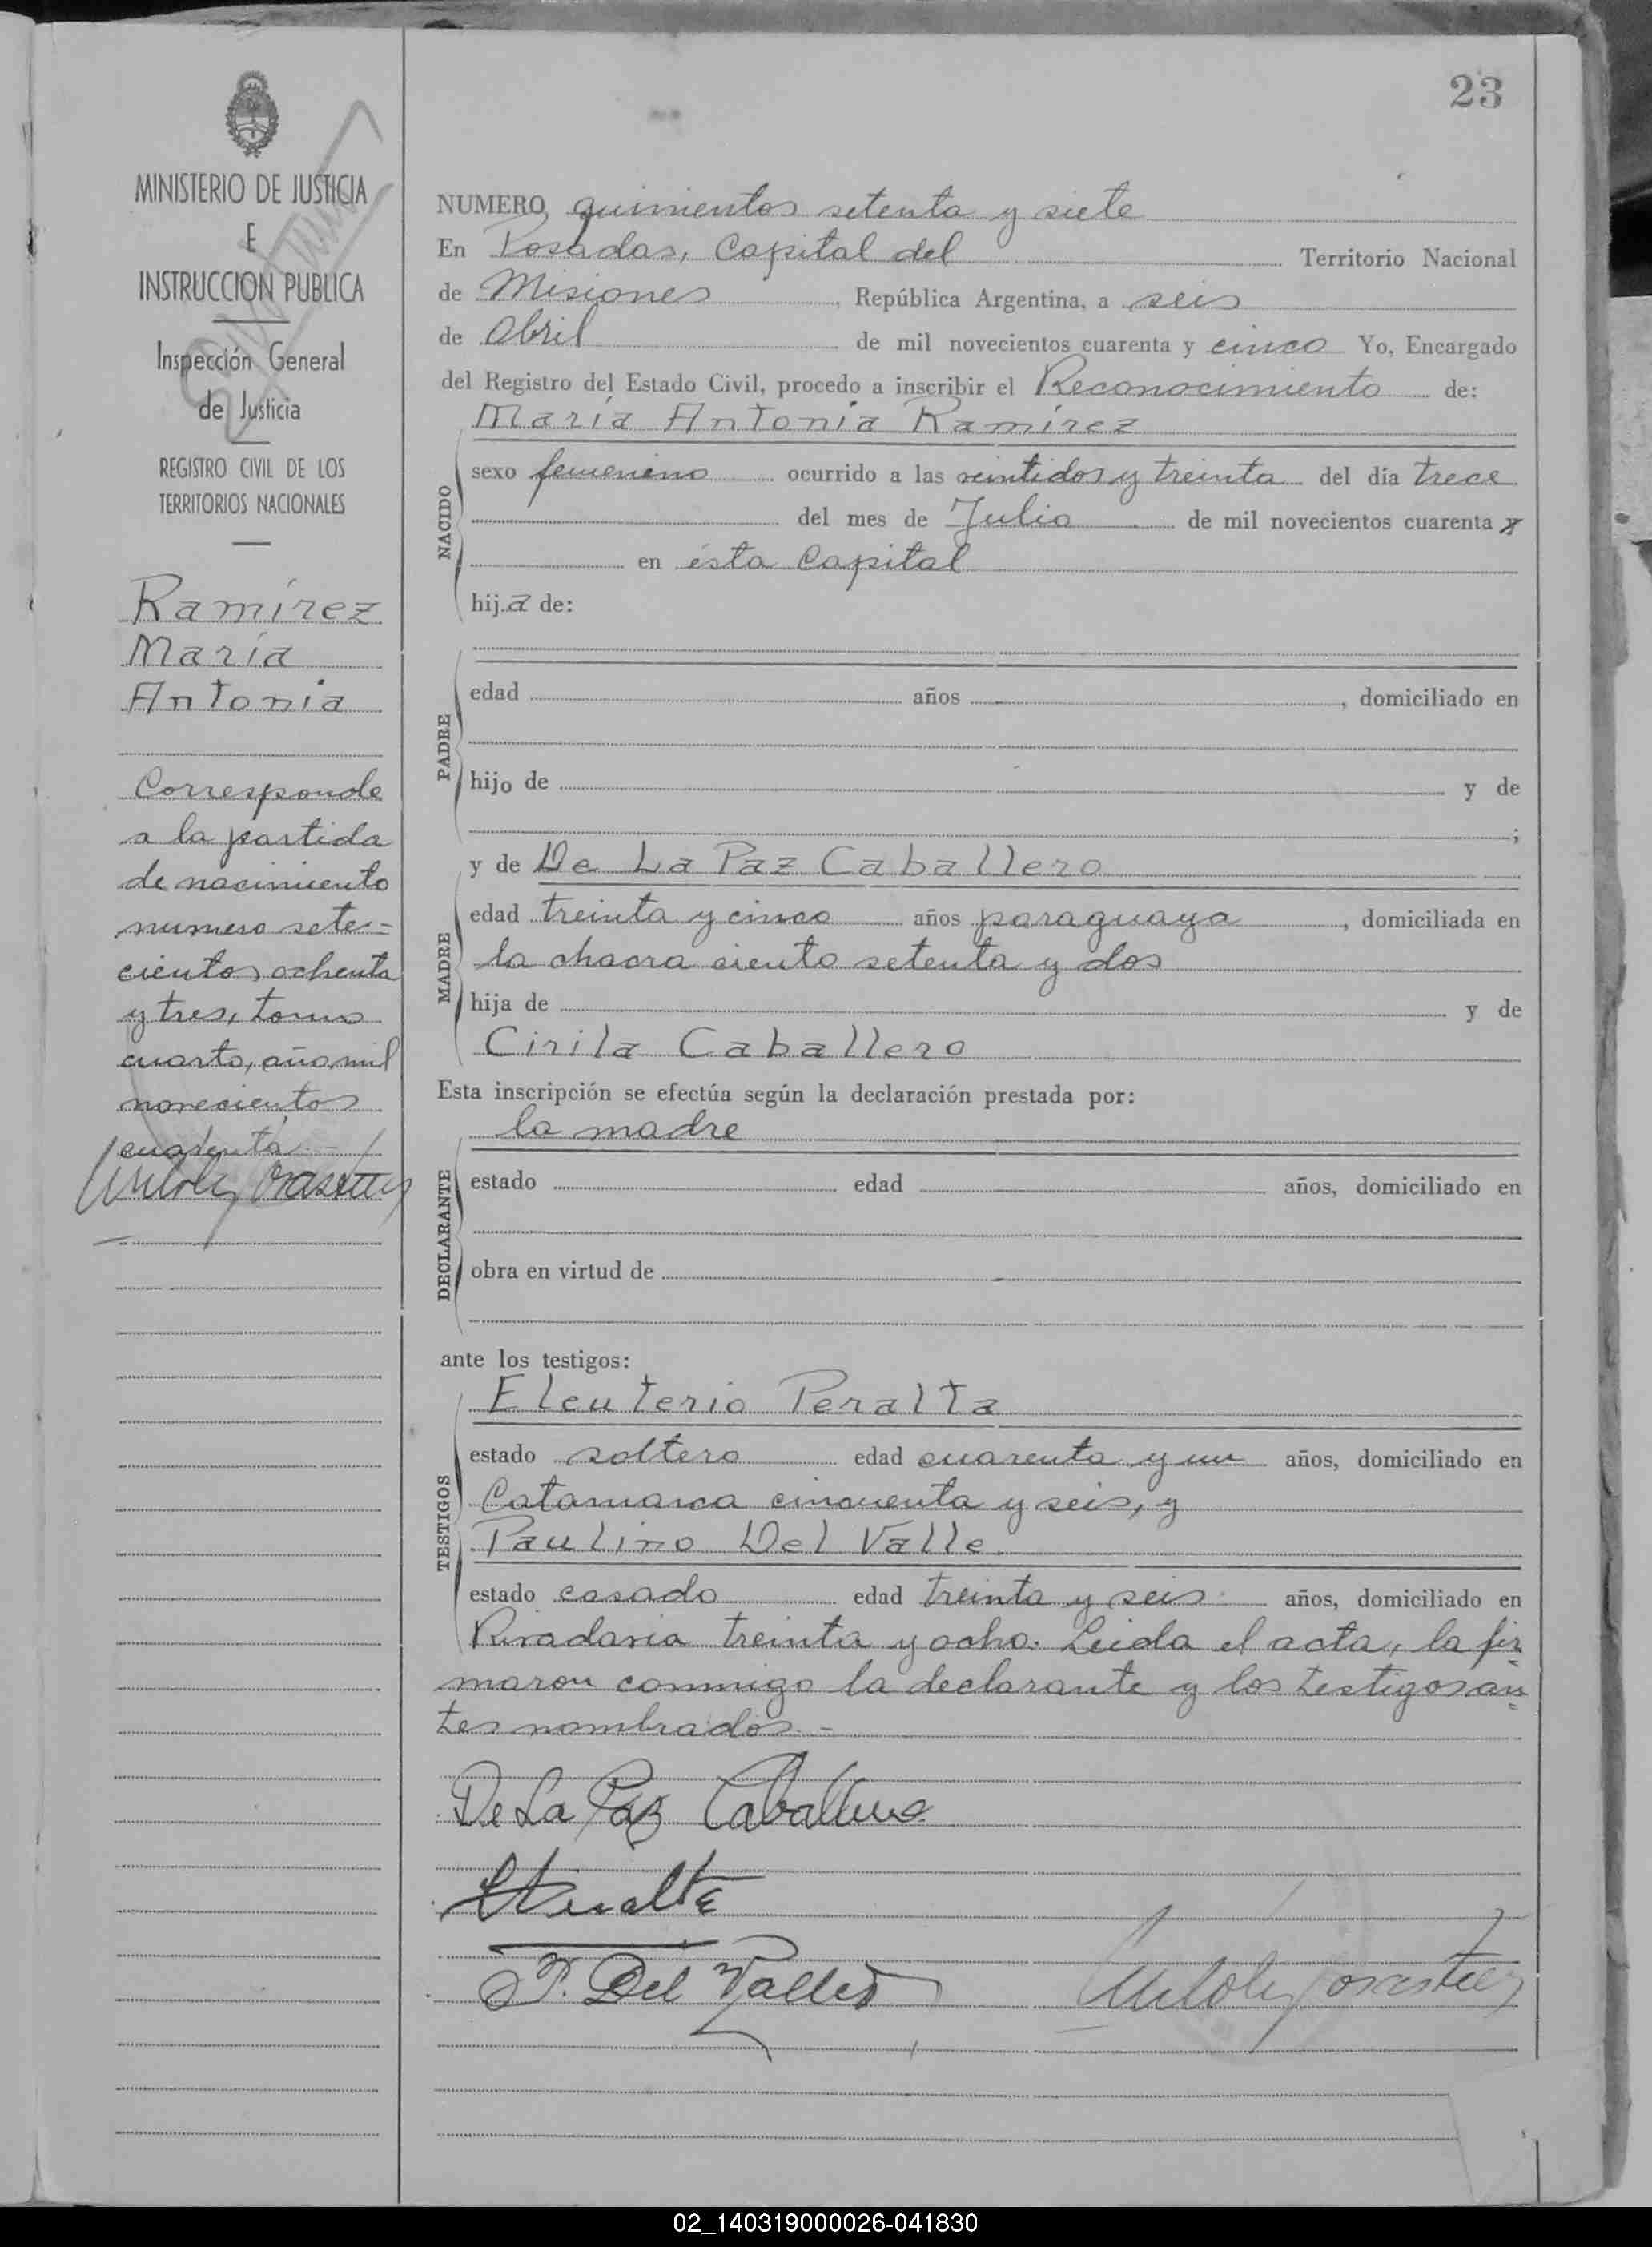 23
MINISTERIO DE JUSTICIA
E
INSTRUCCION PUBLICA
Inspección General
de Justicia
REGISTRO CIVIL DE LOS
TERRITORIOS NACIONALES
Ramírez
María
Antonia
Corresponde
a la partida
de nacimiento
numero sete=
cientos ochenta
y tres, tomo
cuarto, año mil
novecientos
cuarenta.-
NUMERO quinientos setenta y siete
En Posadas, Capital del Territorio Nacional
de Misiones, República Argentina, a seis
de Abril de mil novecientos cuarenta y cinco Yo, Encargado
del Registro del Estado Civil, procedo a inscribir el Reconocimiento de:
María Antonia Ramírez
NACIDO
sexo femenino ocurrido a las veintidos y treinta del día trece
del mes de Julio de mil novecientos cuarenta
en ésta Capital
hija de:
PADRE
edad años , domiciliado en
hijo de y de
;
y de De La Paz Caballero
MADRE
edad treinta y cinco años paraguaya, domiciliada en
la chacra ciento setenta y dos
hija de y de
Cirila Caballero
Esta inscripción se efectúa según la declaración prestada por:
la madre
DECLARANTE
estado edad años, domiciliado en
obra en virtud de
ante los testigos:
Eleuterio Peralta
TESTIGOS
estado soltero edad cuarenta y un años, domiciliado en
Catamarca cincuenta y seis, y
Paulino Del Valle
estado casado edad treinta y seis años, domiciliado en
Rivadavia treinta y ocho. Leida el acta, la fir
maron conmigo la declarante y los testigos an
tes nombrados.-
De La Paz Caballero
P. Del Valle
02_140319000026-041830